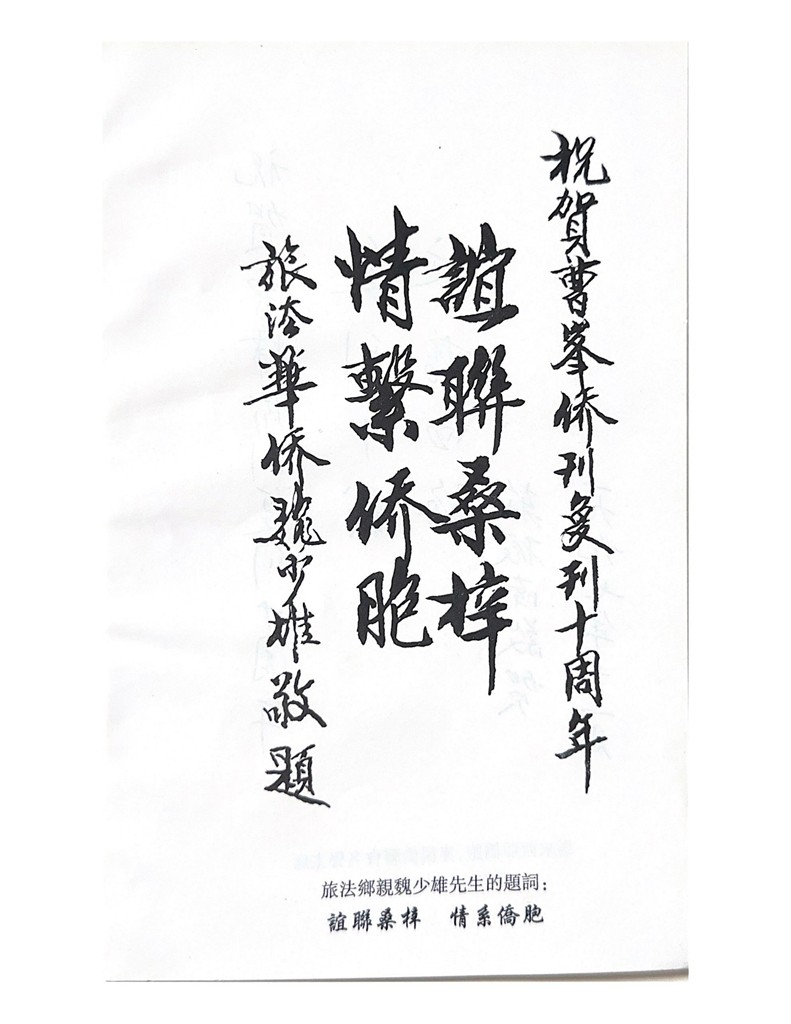 祝賀曹峯侨刊复刊十周年
誼聯桑梓
情繫侨胞
旅法華侨魏少雄敬題
旅法鄉親魏少雄先生的題詞：
誼聯桑梓 情系僑胞